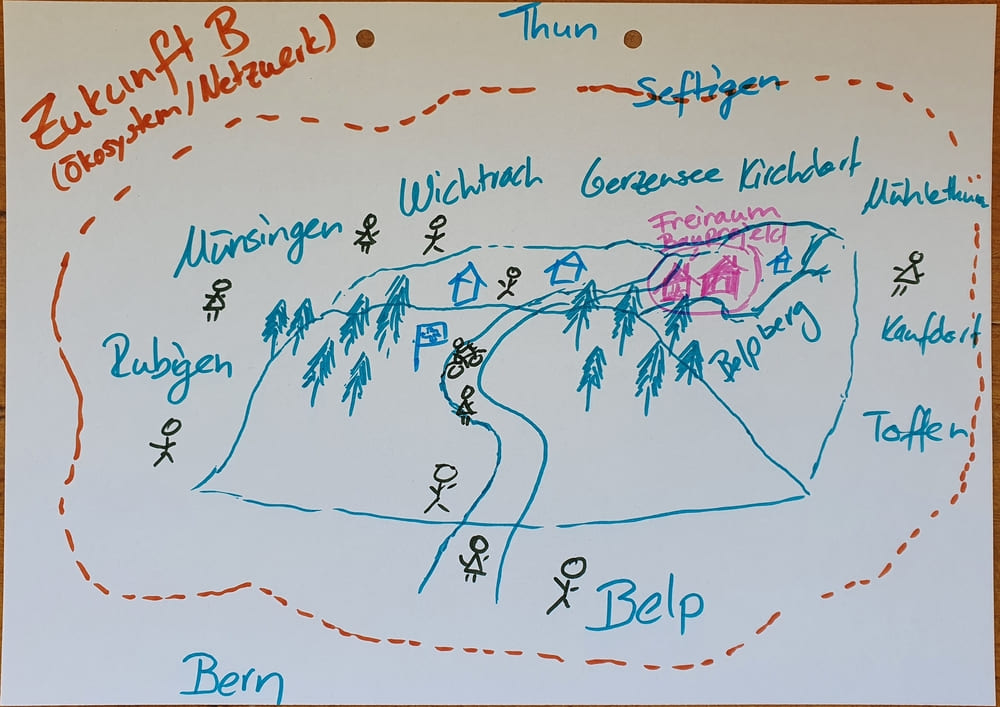 Zukunft B
(Ökosystem/Netzwerk)
Thun
Seftigen
Wichtrach
Gerzensee
Kirchdorf
Mühlethurn
Münsingen
Freiraum
Bauprojekt
Kaufdorf
Belpberg
Rubigen
Toffen
Belp
Bern